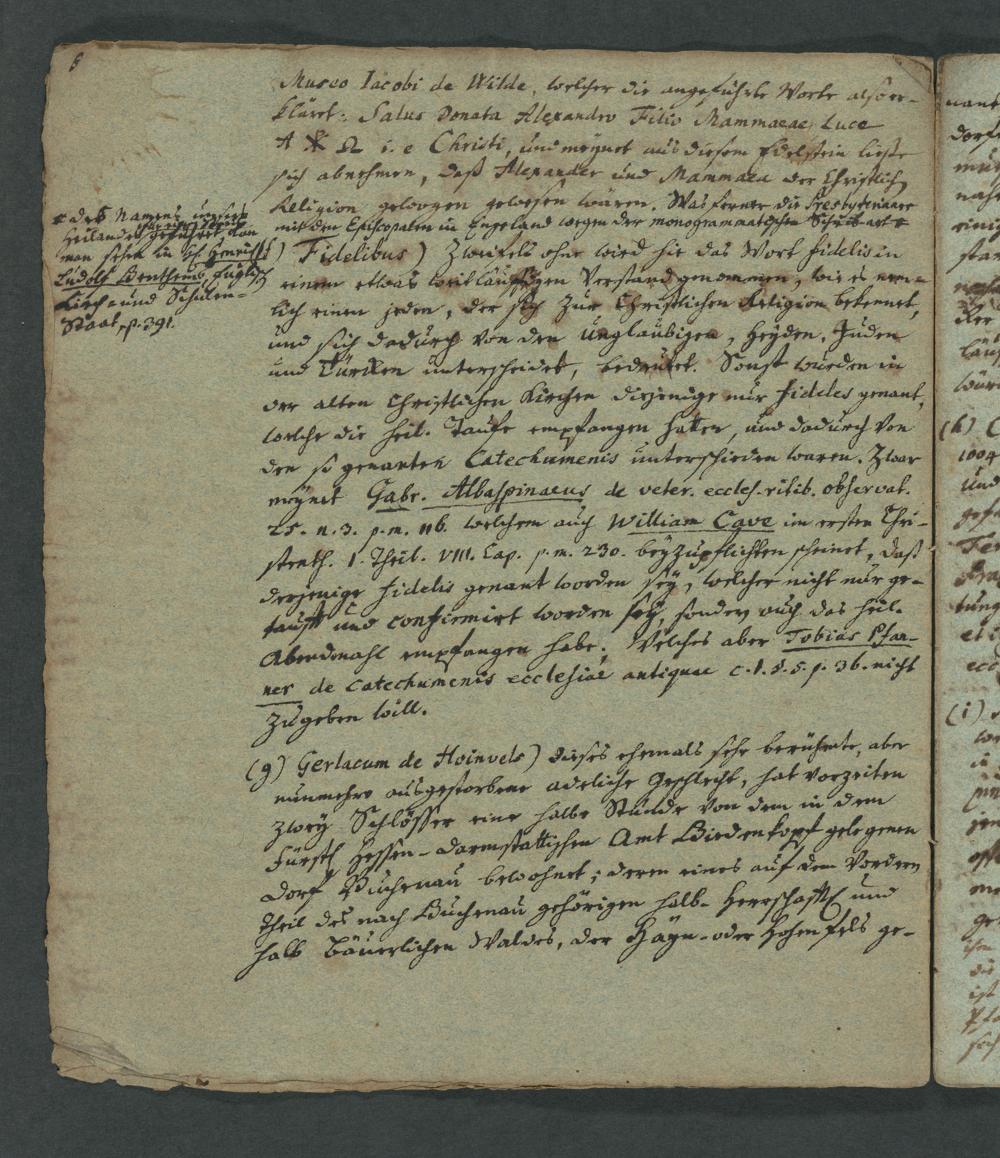 8
Museo Iacobi de Wilde, welcher die angeführte Worte also er-
kläret: Salus Donata Alexandro Filio Mammaeae, Luce
A ☧ Ω i. e Christi, und meynet aus diesem Edelstein ließe
sich abnehmen, daß Alexander und Mammaea der Christlich
Religion gewogen gewesen wären. Was ferner die Presbyterianer
mit den Episcopalen in Engeland wegen der monogrammatischen Schreibart
des Namens unsers
Heilandes
man sehe in H. Henrich
Ludolf Benthems, Englisch
Kirch- und Schulen-
Staat, p. 391.
) Fidelibus) Zweifels ohne wird hie das Wort fidelis in
einem etwas weitläuftigen Verstand genommen, wie es nem-
lich einen jeden, der sich zur Christlichen Religion bekennet,
und sich dadurch von den Unglaubigen, Heyden, Juden
und Türcken unterscheidet, bedeutet. Sonst wurden in
der alten Christlichen Kirchen diejenige nur fideles genant,
welche die heil. Taufe empfangen hatten, und dadurch von
den so genanten Catechumenis unterschieden waren. Zwar
meynet Gabr. Albaspinaeus de veter. eccles. ritib. observat.
25. n. 3. p. m. 116. welchem auch William Cave im ersten Chri-
stenth. I. Theil. VIII. Cap. p. m. 230. beyzupflichten scheinet, daß
derjenige fidelis genant worden sey, welcher nicht nur ge-
tauft und confirmirt worden sey, sondern auch das heil.
Abendmahl empfangen habe; Welches aber Tobias Pfan-
ner de Catechumenis ecclesiae antiquae c. 1. §. 5. p. 36. nicht
zugeben will.
(g) Gerlacum de Hoinvels) dieses ehemals sehr berühmte, aber
nunmehro ausgestorbene adeliche Geschlecht, hat vorzeiten
zwey Schlösser eine halbe Stunde von dem in dem
Fürstl Hessen-Darmstättischen Amt Biedenkopf gelegenen
Dorf Buchenau bewohnet; deren eines auf dem Vordern
Theil des nach Buchenau gehörigen halb-Herrschaftl und
halb Bäuerlichen Waldes, der Hayn- oder Hohenfels ge-